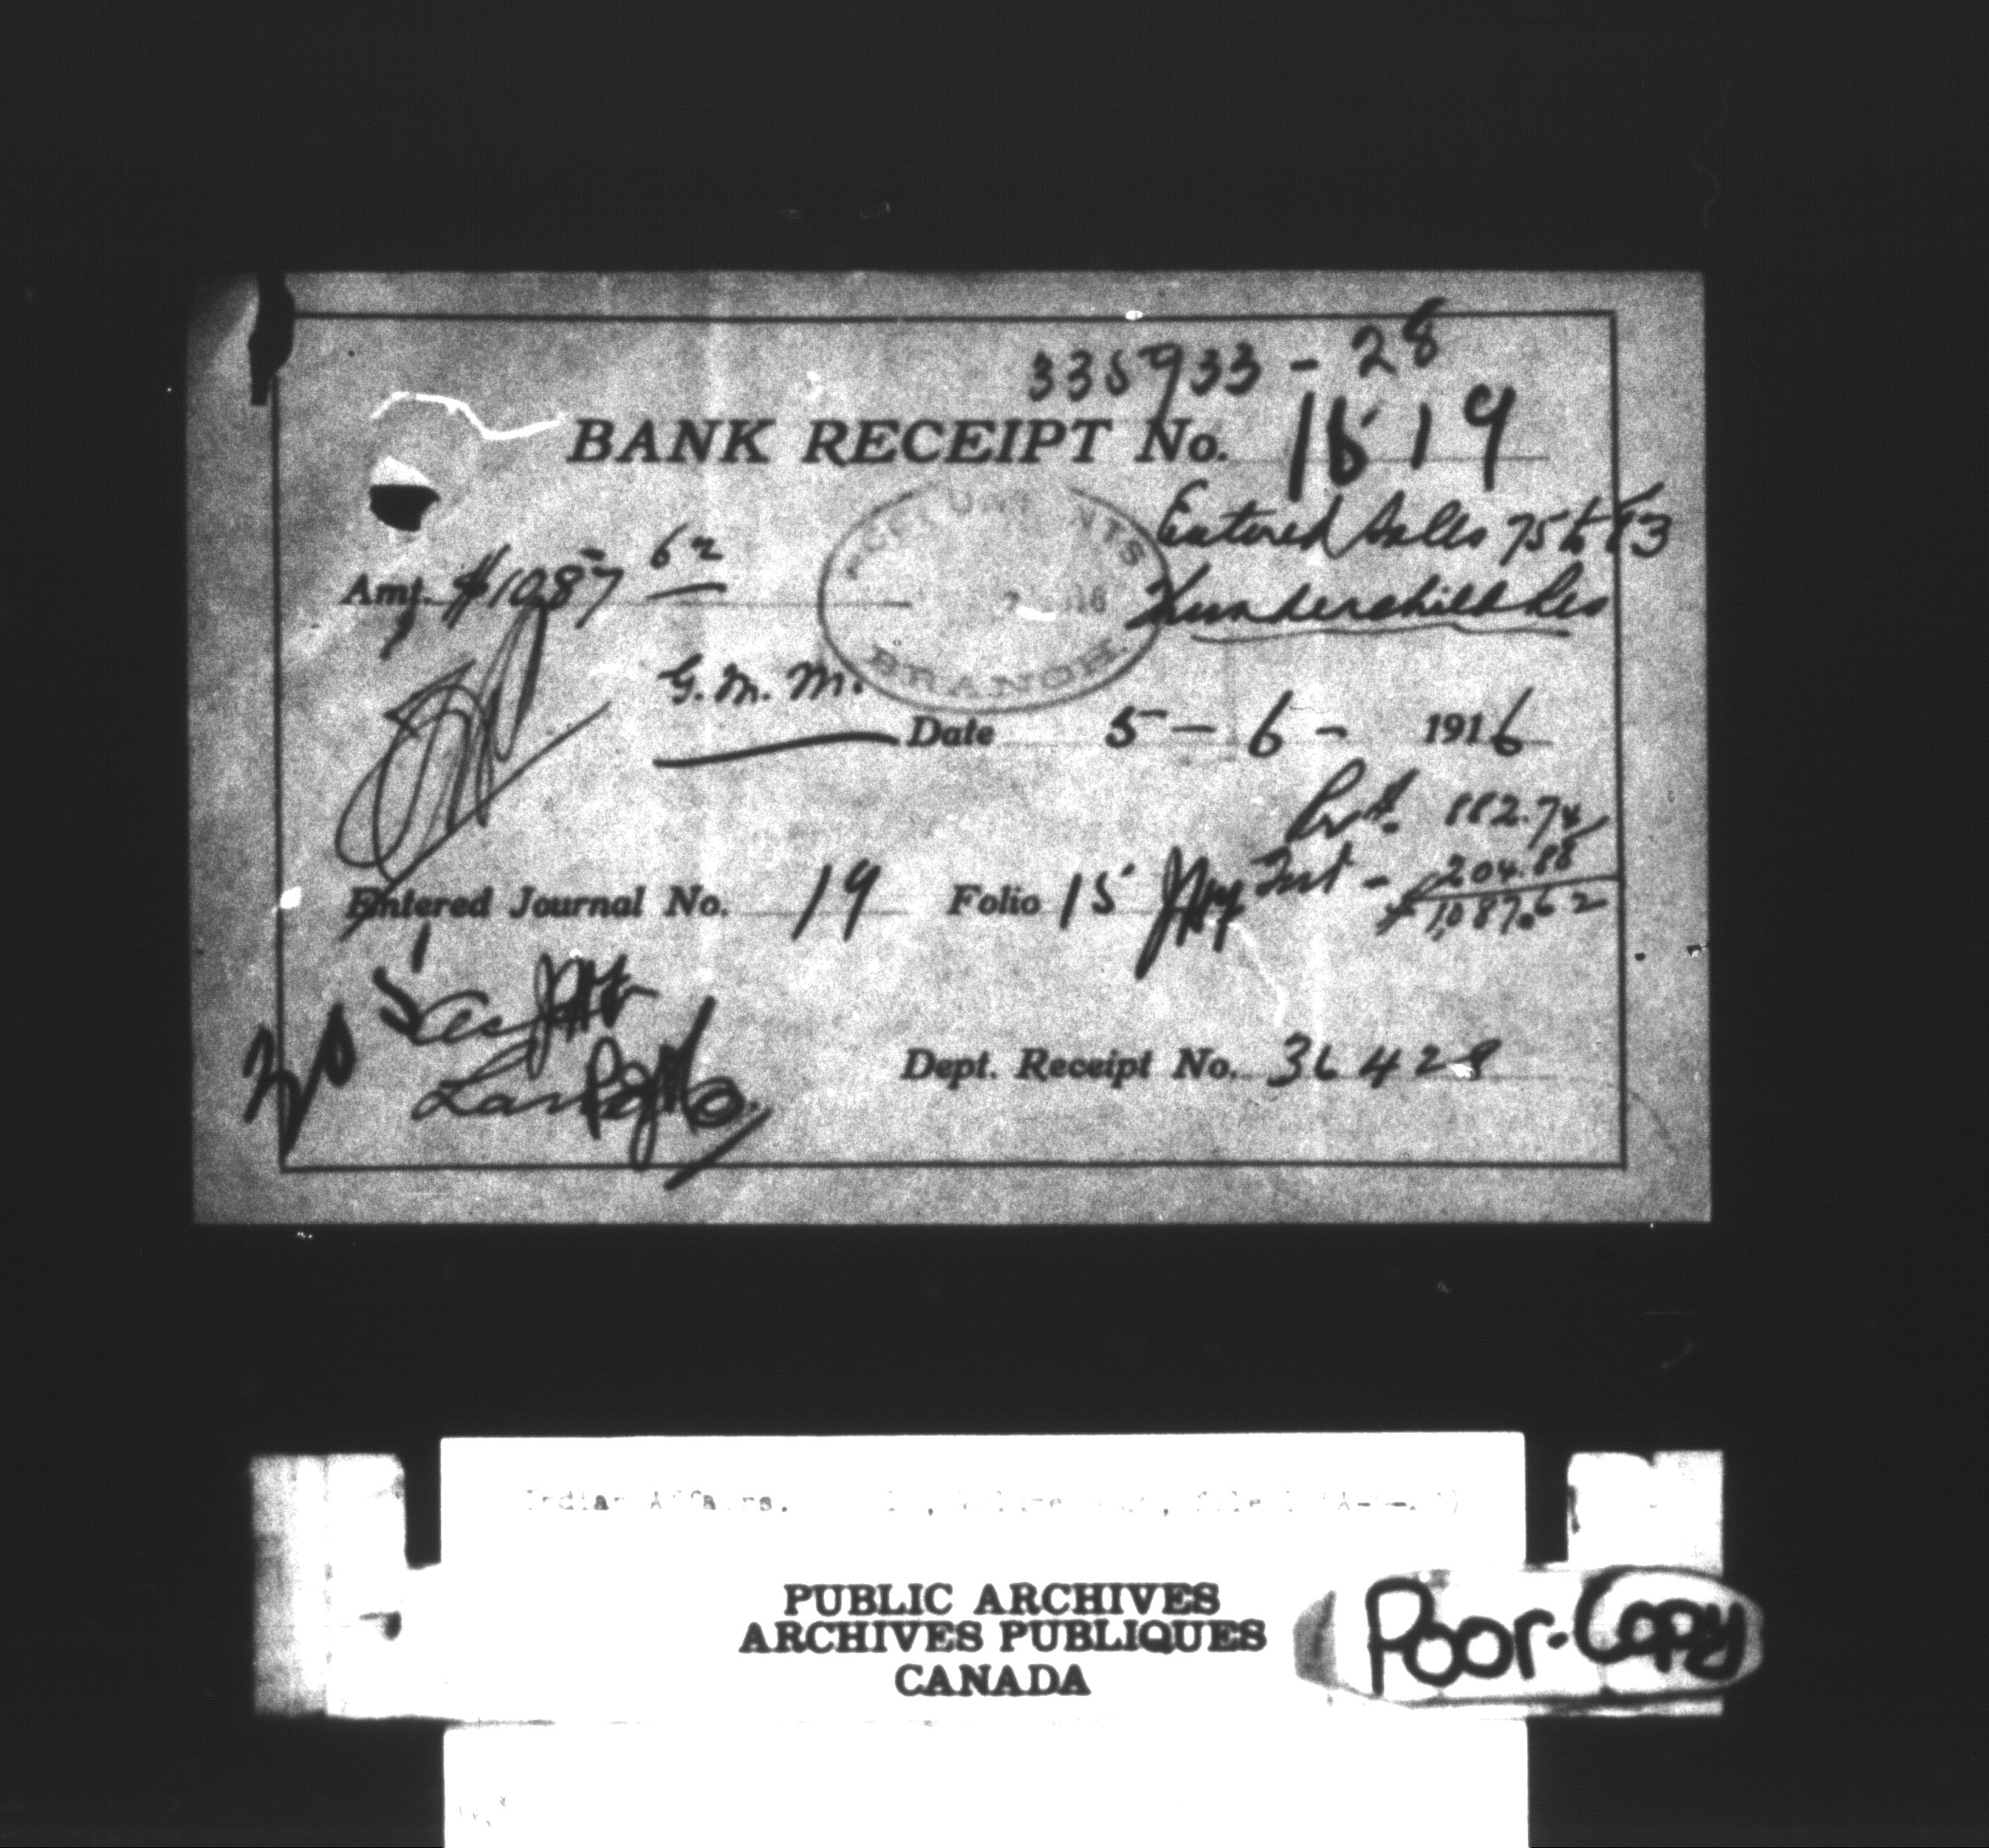 335933 - 28
BANK RECEIPT No. 1519
Entered Sales 75 to 83
Thunderchild Res
Amt. $1087 62
ACCOUNTANTS
BRANCH
G. M. M.
Date 5 - 6 - 1916
Prl. 882.74
Int - 204.88
$1,087.62
Entered Journal No. 19 Folio 15
Dept. Receipt No. 36428
Indian Affairs.
PUBLIC ARCHIVES
ARCHIVES PUBLIQUES
CANADA
Poor-Copy